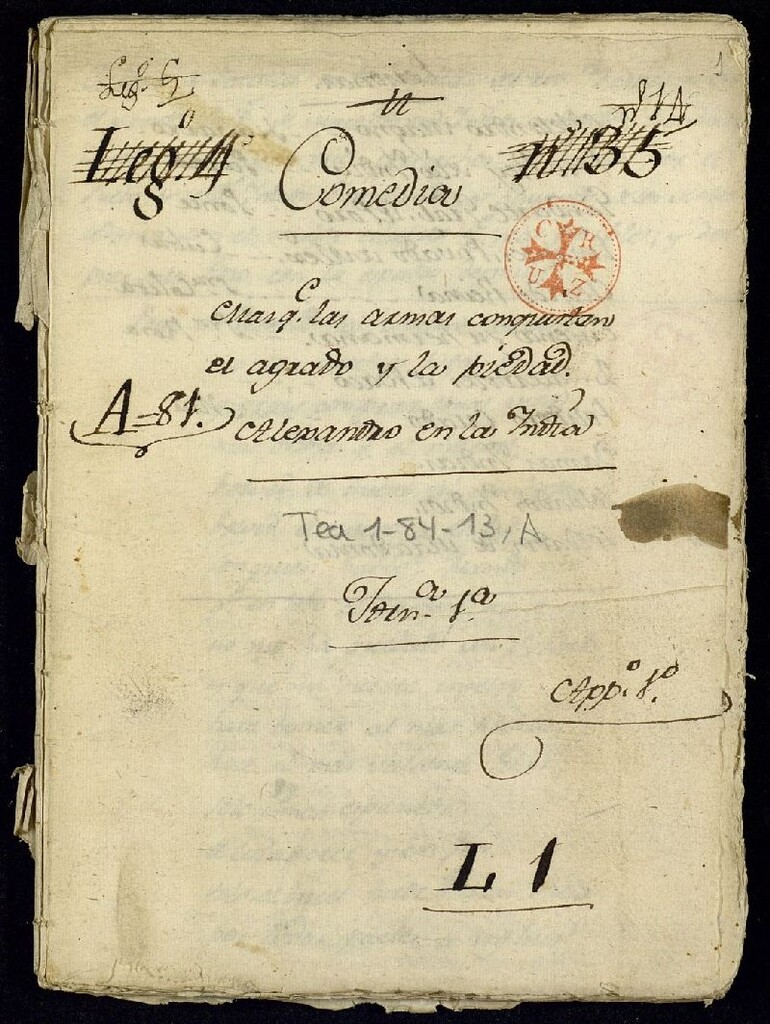 1
Leg.º 5
n.º 14
Leg.º 4º
nº 135
Comedia
C R
U Z
Mas q.e las armas conquistan
el agrado y la piedad.
A-81.
Alexandro en la India
Tea 1-84-13, A
Jorn.ª 1.ª
App.º 1.º
L 1